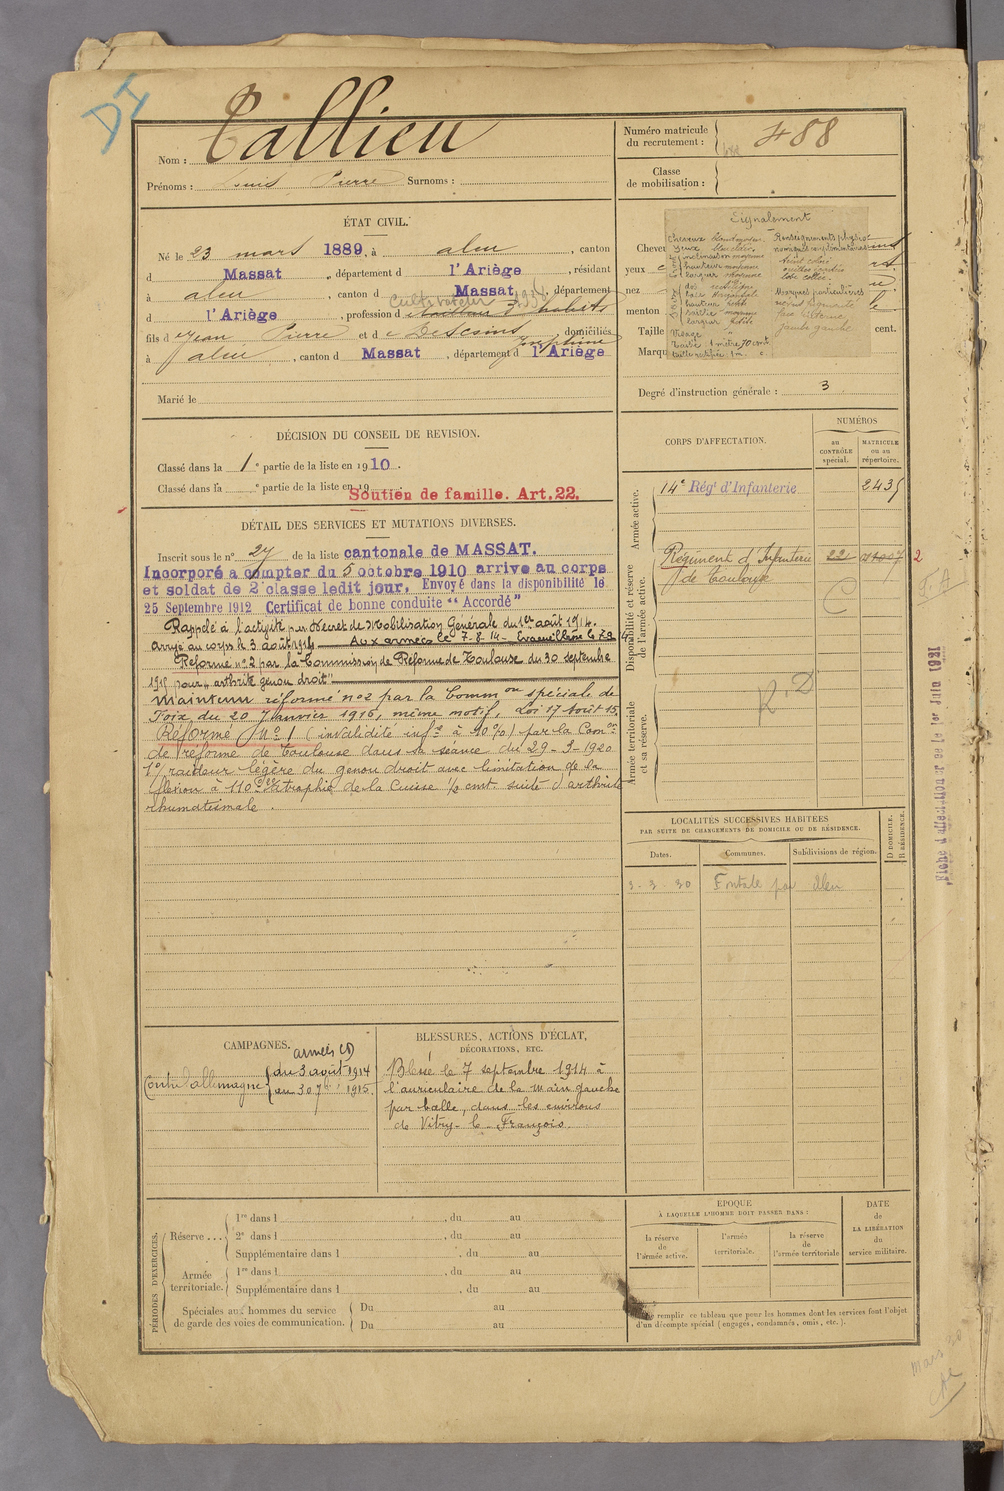 DI
Nom : Tallieu
Prénoms : Louis Pierre Surnoms :
Numéro matricule du recrutement : 488
Classe de mobilisation :
ÉTAT CIVIL.
Né le 23 mars 1889, à aleu, canton
d Massat, département d l'Ariège, résidant
à aleu, canton d Massat, département
Cultivateur 1938
d l'Ariège, profession d d'habits
fils d Jean Pierre et d Descoins Joséphine domiciliés
à aleu, canton d Massat, département d l'Ariège
Marié le
Signalement
Cheveux
Yeux
inclinaison moyenne
hauteur moyenne
largeur moyenne
dos rectiligne
base horizontale
hauteur petite
saillie moyenne
largeur petite
Visage "
Taille 1 mètre 70 cent.
Taille rectifiée 1 m. c.
Renseignements physio-
nomiques complémentaires
Teint coloré
oreilles
lobe collé.
Marques particulières
face interne
jambe gauche
Cheveu
yeux
nez
menton
Taille
cent.
Marqu
Degré d'instruction générale : 3
DÉCISION DU CONSEIL DE REVISION.
Classé dans la 1e partie de la liste en 1910.
Classé dans la e partie de la liste en 19
Soutien de famille. Art. 22.
DÉTAIL DES SERVICES ET MUTATIONS DIVERSES.
Inscrit sous le n° 27 de la liste cantonale de MASSAT.
Incorporé a compter du 5 octobre 1910 arrive au corps
et soldat de 2e classe ledit jour. Envoyé dans la disponibilité le
25 Septembre 1912 Certificat de bonne conduite "Accordé"
Rappelé à l'activité par Décret de Mobilisation Générale du 1er août 1914.
arrivé au corps le 3 août 1914 Aux armées le 7.8.14 -
Réformé n° 2 par la Commission de Réforme de Toulouse du 30 septembre
1915 pour "arthrite genou droit"
Maintenu réformé n° 2 par la Common spéciale de
Foix du 20 Janvier 1916, même motif, Loi 17 Août 15
Réformé N° 1 (invalidité infre à 10 %) par la Comon
de réforme de Toulouse dans sa séance du 29-9-1920
1°/ raideur légère du genou droit avec limitation de la
flexion à 110° atrophie de la Cuisse cmt. suite d'arthrite
rhumatismale.
CORPS D'AFFECTATION.
NUMÉROS
au CONTRÔLE spécial.
MATRICULE ou au répertoire.
Armée active.
14e Régt d'Infanterie 2435
Disponibilité et réserve de l'armée active.
Régiment d'Infanterie
de Toulouse
2
C
F. A
Armée territoriale et sa réserve.
R.D
Fiche d'affection ar se le 1er Juin 1921
LOCALITÉS SUCCESSIVES HABITÉES
PAR SUITE DE CHANGEMENTS DE DOMICILE OU DE RÉSIDENCE.
Dates.
Communes.
Subdivisions de région.
D DOMICILE. R RÉSIDENCE.
3-3-30 Fontale par Aleu
CAMPAGNES.
armées (D)
Contre l'allemagne du 3 août 1914
au 30 7bre 1915.
BLESSURES, ACTIONS D'ÉCLAT,
DÉCORATIONS, ETC.
Blessé le 7 septembre 1914 à
l'auriculaire de la main gauche
par balle, dans les environs
de Vitry-le-François.
PÉRIODES D'EXERCICES.
Réserve ...
1re dans l , du au
2e dans l , du au
Supplémentaire dans l , du au
Armée territoriale.
1re dans l , du au
Supplémentaire dans l , du au
Spéciales aux hommes du service
de garde des voies de communication.
Du au
Du au
ÉPOQUE
À LAQUELLE L'HOMME DOIT PASSER DANS :
la réserve de l'armée active.
l'armée territoriale.
la réserve de l'armée territoriale
DATE de LA LIBÉRATION du service militaire.
remplir ce tableau que pour les hommes dont les services font l'objet
d'un décompte spécial (engagés, condamnés, omis, etc.).
Mars 30